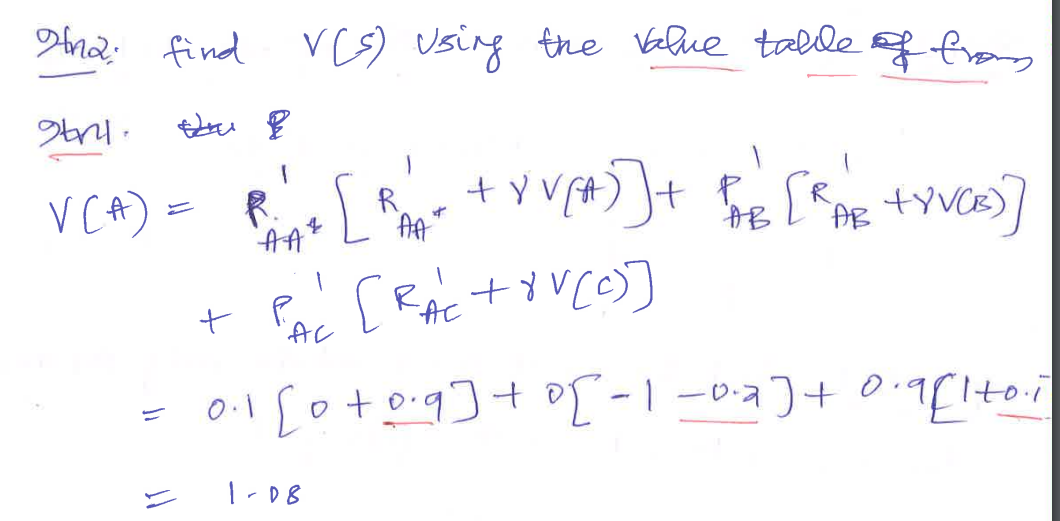 Itn2. find V(S) using the value table of from
Itn1. the P
V(A) = P¹AA* [R¹AA* + γV(A)] + P¹AB [R¹AB + γV(B)]
+ P¹AC [R¹AC + γV(C)]
= 0.1[0+0.9] + 0[-1-0.2] + 0.9[1+0.1
= 1.08